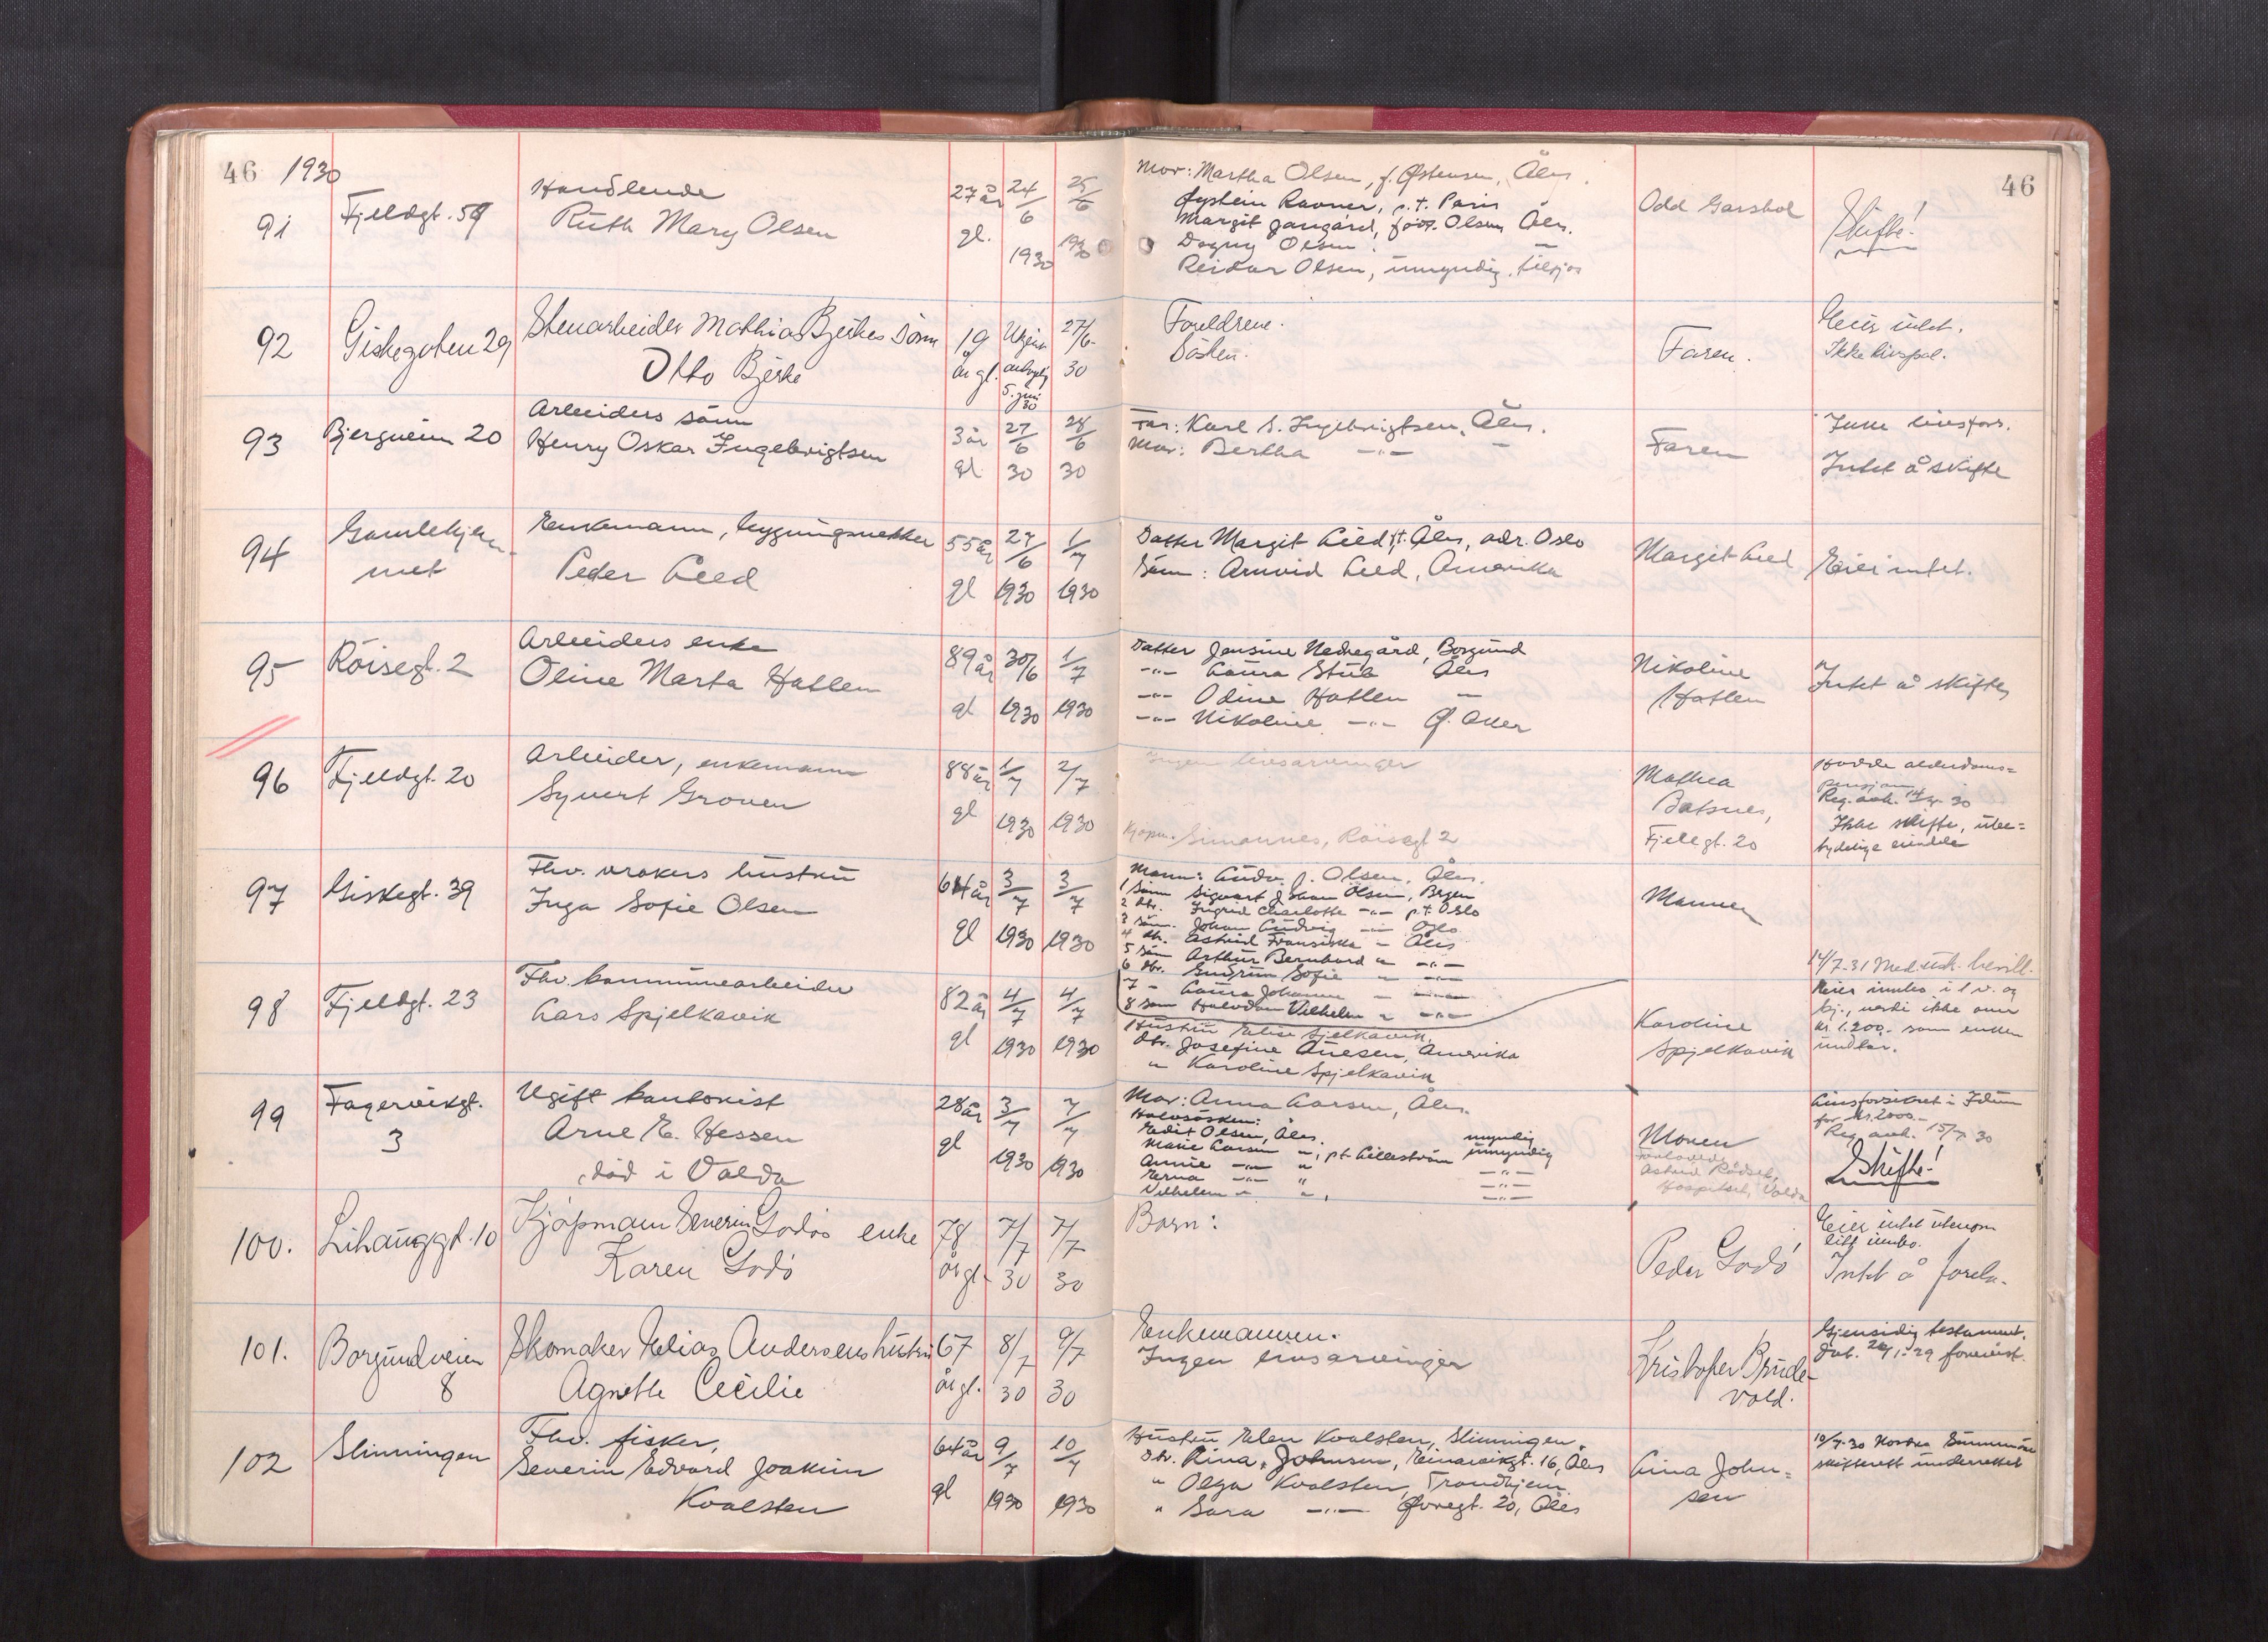 46 1930
46
91
Fjeldgt. 59
Handlende
Ruth Mary Olsen
27 år
gl.
24/6
1930
25/6
1930
Mor: Martha Olsen, f. Østensen, Åles.
Øystein Ravner, p.t. Paris
Margit Jangård, født Olsen, Åles.
Dagny Olsen —
Reidar Olsen, umyndig, tilsjøs
Odd Garshol
Skifte!
92
Giskegaten 29
Stenarbeider Mathias Bjerkes sønn
Otto Bjerke
19
år gl.
5. juni
30
27/6
30
Foreldrene.
Søsken.
Faren.
Eier intet.
Ikke livspol.
93
Bjergheim 20
Arbeiders sønn
Henry Oskar Ingebrigtsen
3 år
gl
27/6
30
28/6
30
Far: Karl S. Ingebrigtsen, Åles.
Mor: Bertha —"— —
Faren
Ikke livsfors.
Intet å skifte
94
Gamlekjem-
met
Enkemann, bygningssnekker
Peder Lied
55 år
gl
27/6
1930
1/7
1930
Datter Margit Lied p.t. Åles, adr. Oslo
Sønn: Arnvid Lied, Amerika
Margit Lied
Eier intet.
95
Röisegt. 2
Arbeiders enke
Oline Marta Hatlen
89 år
gl
30/6
1930
1/7
1930
Datter Jensine Nedregård, Borgund
—"— Laura Stub Åles
—"— Odine Hatlen —
—"— Nikoline —"— Ø. Aker
Nikoline
Hatlen
Intet å skifte
96
Fjeldgt. 20
Arbeider, enkemann
Syvert Groven
88 år
gl
1/7
1930
2/7
1930
Ingen livsarvinger
Kjøpm. Simonnes, Röisegt 2
Mathea
Batsnes,
Fjellgt. 20
Hadde alderdoms=
pensjon
Ikke skifte, ube=
tydelige eiendele
97
Giskegt. 39
Fhv. vrakers hustru
Inga Sofie Olsen
64 år
gl
3/7
1930
3/7
1930
Mann: Ludv. J. Olsen, Åles.
1 Sønn Sigvart Johan Olsen, Bergen
2 dtr. Ingrid Charlotte —"— p.t. Oslo
3 sønn. Johan Ludvig —"— Oslo
4 dtr. Astrid Fransiska — Åles
5 Søn Arthur Bernhard " —"—
6 dtr. Gudrun Sofie " —"—
7 - Laura Johanne — —"—
8 sønn Halvdan Vilhelm " —"—
Mannen
98
Fjeldgt. 23
Fhv. kommunearbeider
Lars Spjelkavik
82 år
gl
4/7
1930
4/7
1930
Hustru Elise Spjelkavik,
dtr. Josefine Anesen, Amerika
" Karoline Spjelkavik
Karoline
Spjelkavik
14/7-31 Med. usk. bevill.
Eier innbo i l.v. og
kj., verdi ikke over
kr. 1.200,- som enken
undtar.
99
Fagervikgt.
3
Ugift kontorist
Arne E. Hessen
død i Volda
28 år
gl
3/7
1930
7/7
1930
Mor: Anna Larsen, Åles.
Halvsøsken:
Edit Olsen, Åles. myndig
Marie Larsen —", pt. Lilleström umyndig
Annie —"— " —"—
Erna —"— " —"—
Vilhelm " " , —"—
Moren
Forlovede
Astrid Rødset,
Hospitset, Volda
Livsforsikret i Idun
for kr. 2000.-
Reg. avh. 15/7 30
Skifte!
100.
Lihauggt. 10
Kjøpmann Severin Godøs enke
Karen Godø
78
år gl.
7/7
30
7/7
30
Barn:
Peder Godø
Eier intet utenom
litt innbo.
Intet å foreta.
101.
Borgundveien
8
Skomaker Elias Andersens hustru
Agnethe Cecilie
67
år gl.
8/7
30
9/7
30
Enkemannen.
Ingen livsarvinger
Kristofer Brude-
vold.
Gjensidig testament.
dat. 26/1-29 forevist.
102
Slinningen
Fhv. fisker,
Severin Edvard Joakim
Kvalsten
64 år
gl
9/7
1930
10/7
1930
Hustru Elen Kvalsten, Slinningen.
Dtr. Lina Johnsen, Einarvikgt. 16, Åles
" Olga Kvalsten, Trondhjem
" Sara —"— Øvregt. 20, Åles
Lina John=
sen
10/7-30 Nordre Sunnmøre
skifterett underrettet